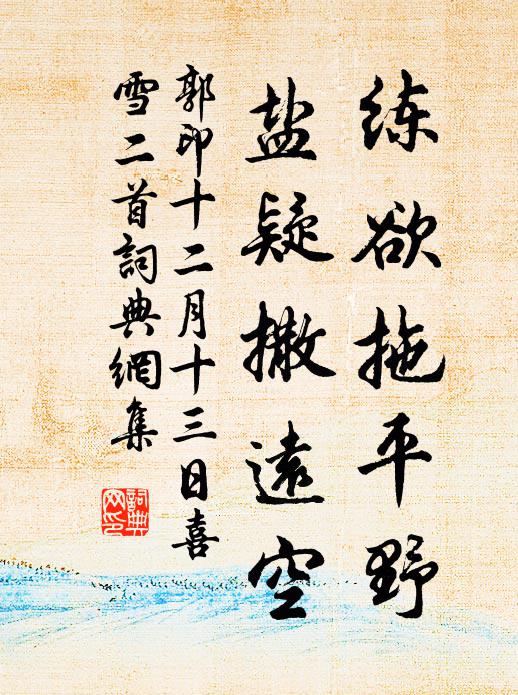 练欲拖平野
盐疑撒远空
郭印十二月十三日喜
雪二首詞典網集
詞典网印